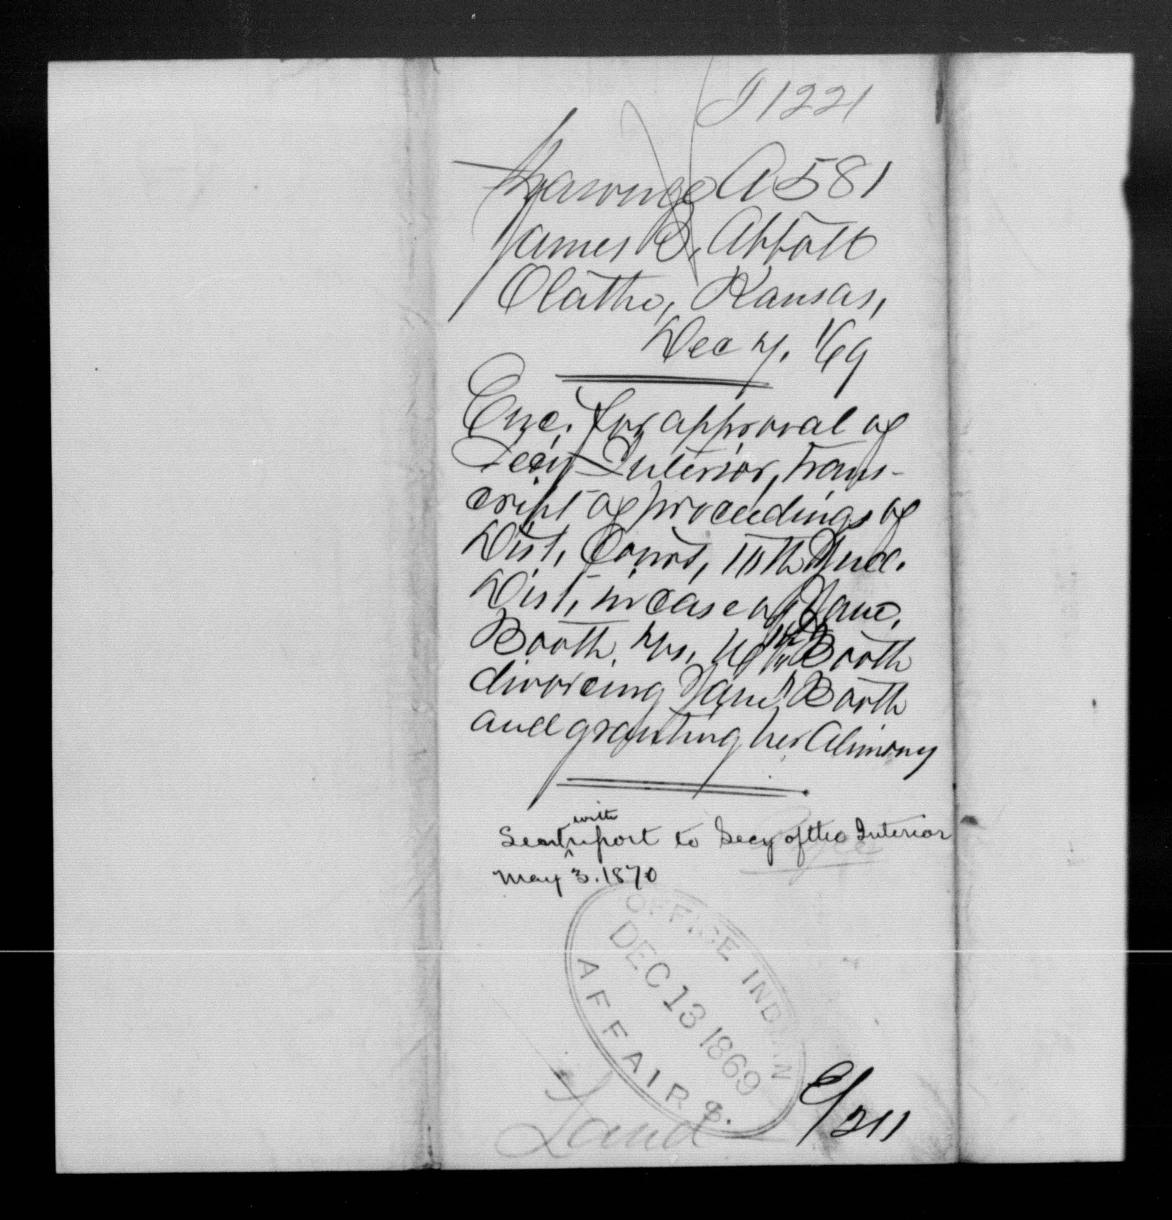 I 1221
Shawnee A 581
James B. Abbott
Olathe, Kansas,
Dec 7. 1/69
Enc. for approval of
Secy Interior, trans-
cript of proceedings of
Dist. Court, 10th Jud.
Dist. in case of Jane
Booth vs. Wm Booth
divorcing Jane Booth
and granting her Alimony
Sent with report to Secy of the Interior
May 3. 1870
OFFICE INDIAN
DEC 13 1869
AFFAIRS.
Land
E/211